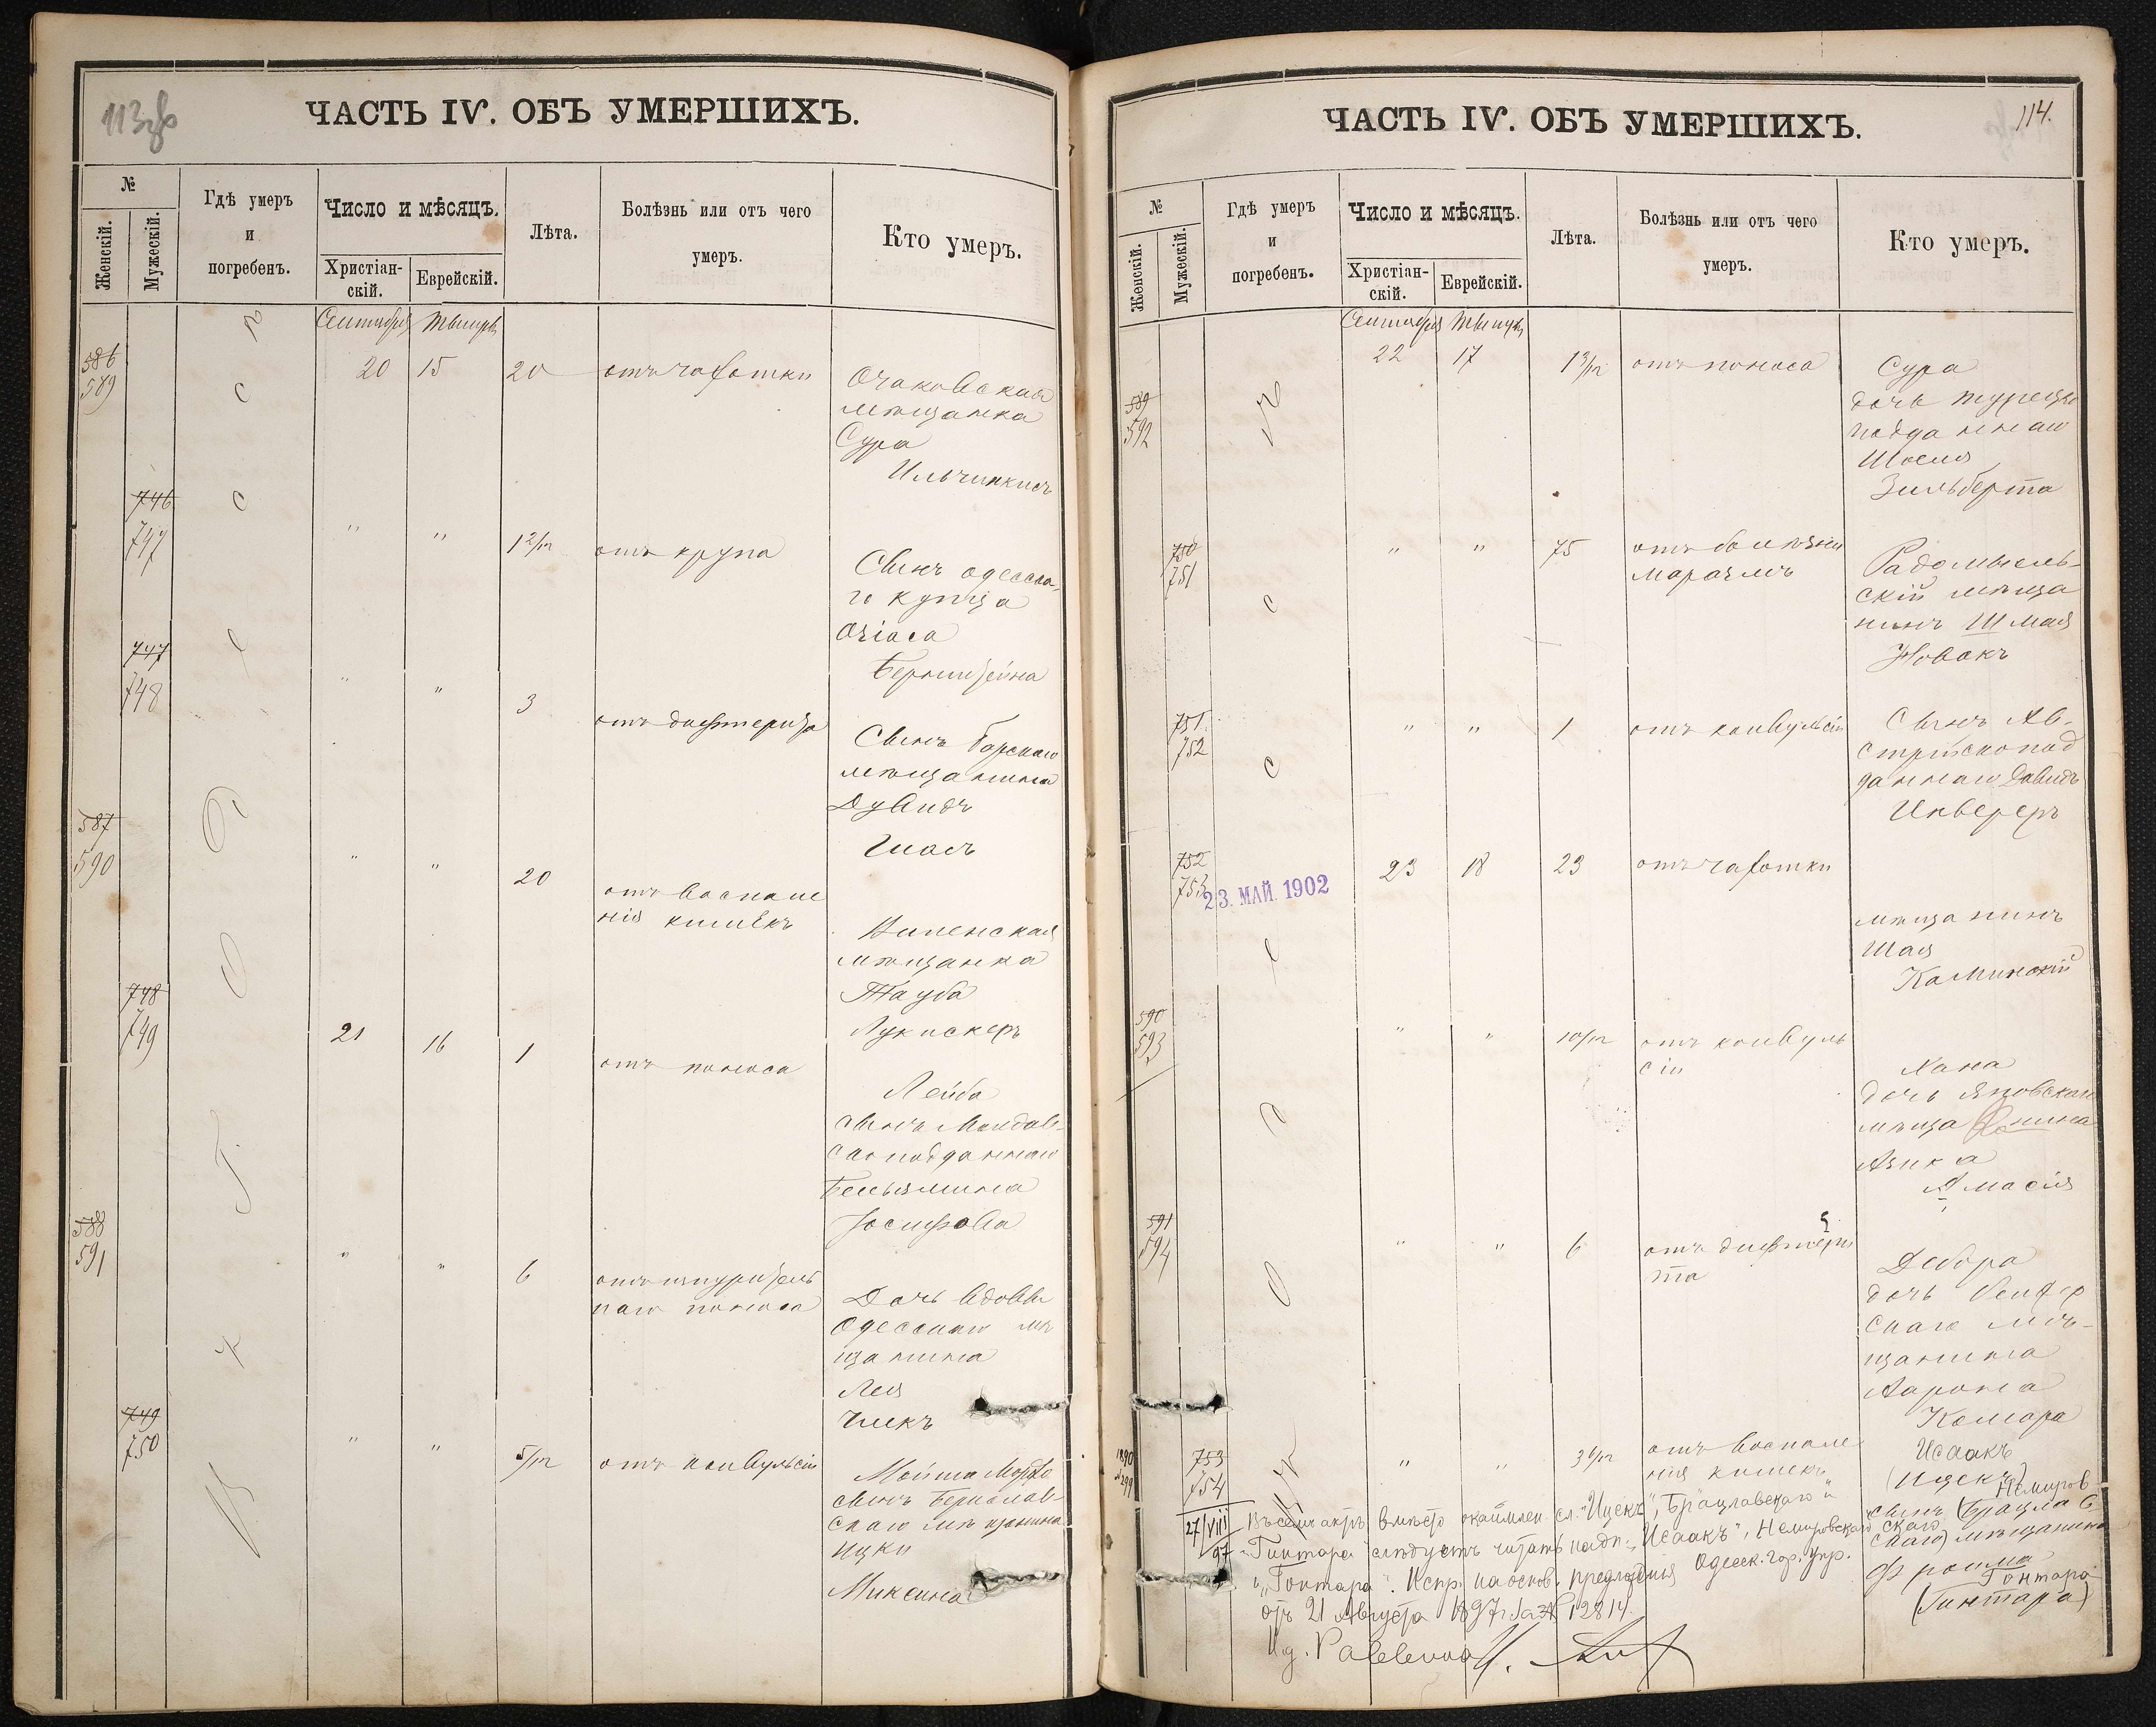 113об
ЧАСТЬ IV. ОБЪ УМЕРШИХЪ.
№
Женскій.
Мужескій.
Гдѣ умеръ
и
погребенъ.
Число и мѣсяцъ.
Христіан-
скій.
Еврейскій.
Лѣта.
Болѣзнь или отъ чего
умеръ.
Кто умеръ.
Сентября
586
589
20 15 20 отъ чахотки
Очаковская
мѣщанка
Сура
746
747
" " 1 2/12 отъ крупа
Сынъ одесска-
го купца
Озіаса
Бернштейна
747
748
" " 3 отъ дифтерита
Сынъ Барскаго
мѣщанина
Дувидъ
587
590
" " 20 отъ воспале
нія кишекъ
Виленская
мѣщанка
Тауба
Лукискеръ
748
749
21 16 1 отъ поноса
Лейба
сынъ Молдав-
скоподданнаго
Беньямина
Іосифова
588
591
" " 6 отъ изнурительнаго поноса
Дочь вдовы
Одесскаго мѣ
щанина
Лея
Чикъ
749
750
" " 5/12 отъ конвульсіи
Мойша Мордко
сынъ Бериславскаго мѣщанина
Ицки
Миксина
114.
ЧАСТЬ IV. ОБЪ УМЕРШИХЪ.
№
Женскій.
Мужескій.
Гдѣ умеръ
и
погребенъ.
Число и мѣсяцъ.
Христіан-
скій.
Еврейскій.
Лѣта.
Болѣзнь или отъ чего
умеръ.
Кто умеръ.
Сентября
589
592
22 17 1 3/12 отъ поноса
Сура
дочь турецко
подданнаго
Зильберта
750
751
" " 75 отъ болѣзни
Маразмъ
Радомысль-
скій мѣща
нинъ Шмая
Новакъ
751
752
" " 1 отъ конвульсіи
Сынъ Ав-
стрійскопод
даннаго Давидъ
Инвереръ
752
753
23. МАЙ. 1902
23 18 23 отъ чахотки
мѣщанинъ
Шая
Каминскій
590
593
" " 10/12 отъ конвуль
сіи
Хана
дочь Яновскаго
мѣщанина
Азика
591
594
" " 6 отъ дифтери
та
Дебора
дочь Бендер
скаго мѣ-
щанина
Аарона
Комара
753
754
" " отъ воспале
нія кишекъ
Исаакъ
(Ицекъ)
Немиров-
скаго
сынъ (Брацлав
скаго) мѣщанина
Фроима
Гонтара
(Гинтара)
27/VIII
97
Въ семъ актѣ вмѣсто окаймлен. сл. "Ицекъ", "Брацлавскаго" и
"Гинтара" слѣдуетъ читать надп. "Исаакъ", "Немировскаго"
и "Гонтара". Испр. на основ. предложенія Одесск. Гор. Упр.
отъ 21 Августа 1897 г. за № 12814.